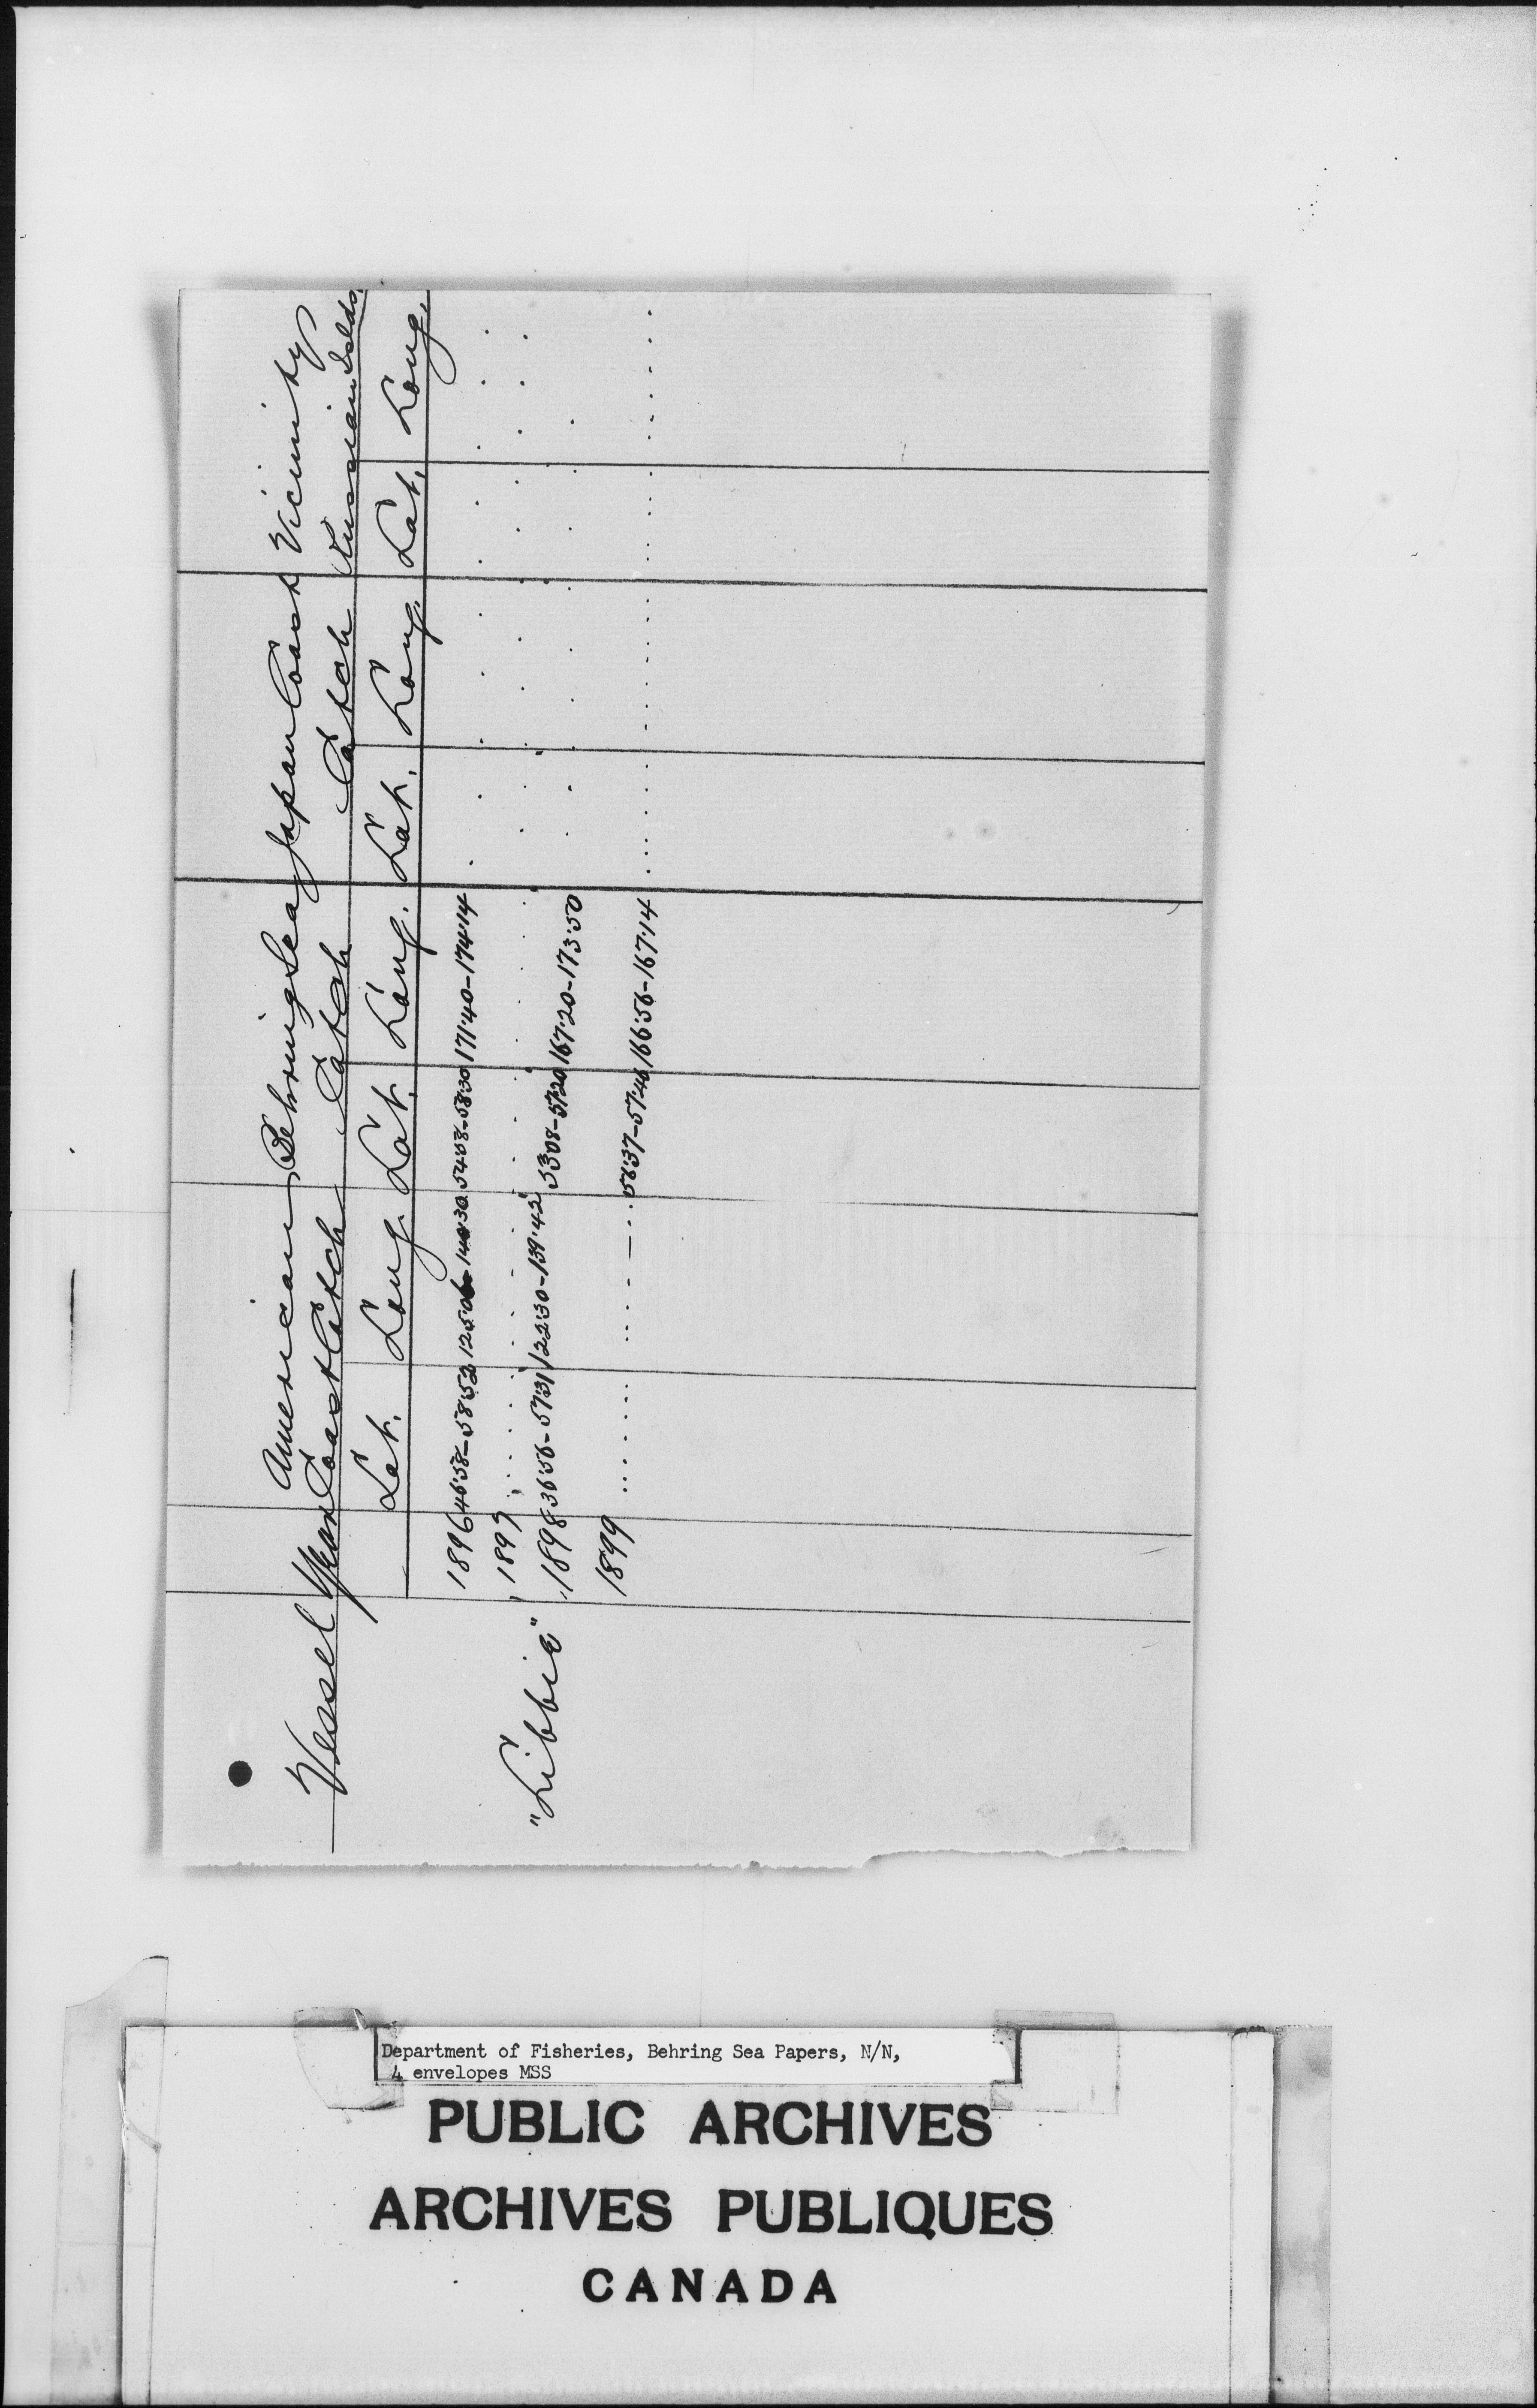 Vessel Year American Coast Catch Behring Sea Catch Japan Coast Catch Vicinity Russian Islds.
Lat. Long. Lat. Long. Lat. Long. Lat. Long.
1896 46·58-58·52 125·06-140·30 54·08-58·30 171·40-174·14
1897
"Libbie" 1898 36·56-57·31 122·30-139·42 53·08-57·20 167·20-173·50
1899 56·37-57·46 166·56-167·14
Department of Fisheries, Behring Sea Papers, N/N,
4 envelopes MSS
PUBLIC ARCHIVES
ARCHIVES PUBLIQUES
CANADA